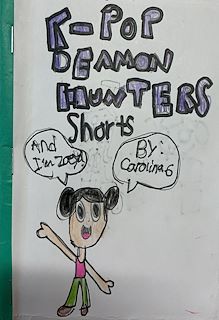 K-POP
DEAMON
HUNTERS
Shorts
And
I'm Zoey!
By:
Carolina G